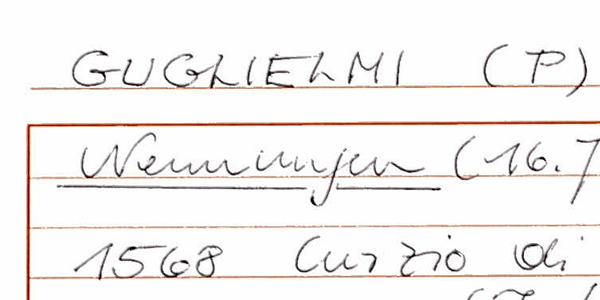 GUGLIELMI (P)
Nennungen (16.
1568 Curzio di